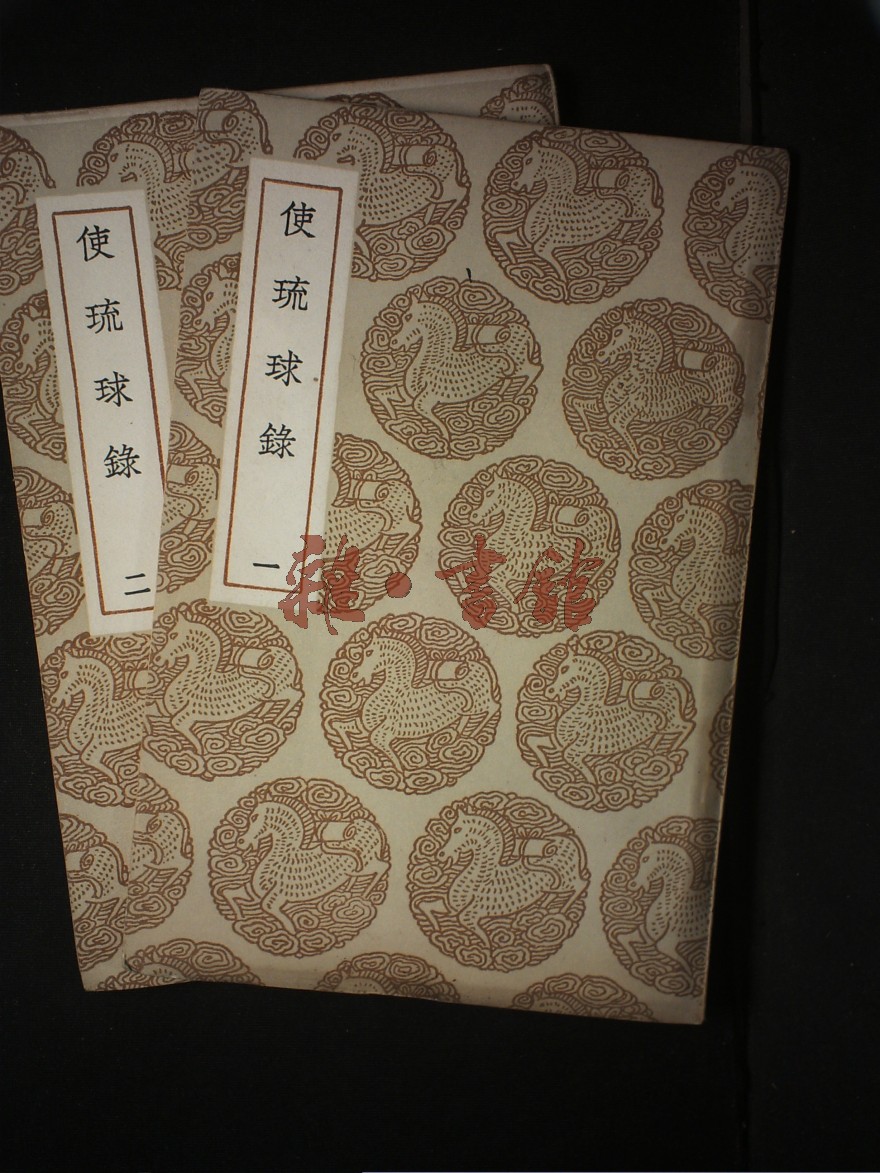 使琉球錄 一
使琉球錄 二
雜·書館